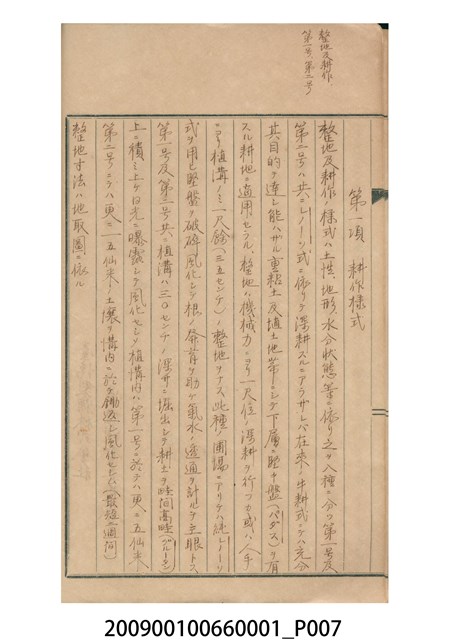 整地及耕作
第一号、第二号
第一項　耕作様式
整地及耕作ノ様式ハ土性、地形、水分状態等ニ依リ之ヲ八種ニ分ツ第一号及
第二号ハ共ニレノーソ式ニ依リテ深耕スルニアラザレバ在来ノ牛耕式ニテハ充分
其目的ヲ達シ能ハザル重粘土及埴土地帯ニシテ下層ニ堅キ盤(バダス)ヲ有
スル耕地ニ適用セラル、整地ハ機械力ニヨリ一尺位ノ深耕ヲ行フカ或ハ人手
ニヨリ植溝ノミ一尺餘(三五センチ)ノ整地ヲナス此種ノ圃場ニアリテハ純レノーソ
式ヲ用ヒ堅盤ヲ破砕シ風化シテ根ノ発育ヲ助ケ気水ノ透通ヲ計ルヲ主眼トス
第一号及第二号共ニ植溝ハ三〇センチノ深サニ掘出シタ耕土ヲ畦間高畦(バルーダン)
上ニ積ミ上ケ日光ニ曝露シテ風化セシメ植溝内ハ第一号ニ於テハ更ニ五仙米
第二号ニテハ更ニ一五仙米ノ土壌ヲ溝内ニ於テ鋤返シ風化セシム(最短二週間)
整地寸法ハ地取圖ニ依ル
200900100660001_P007